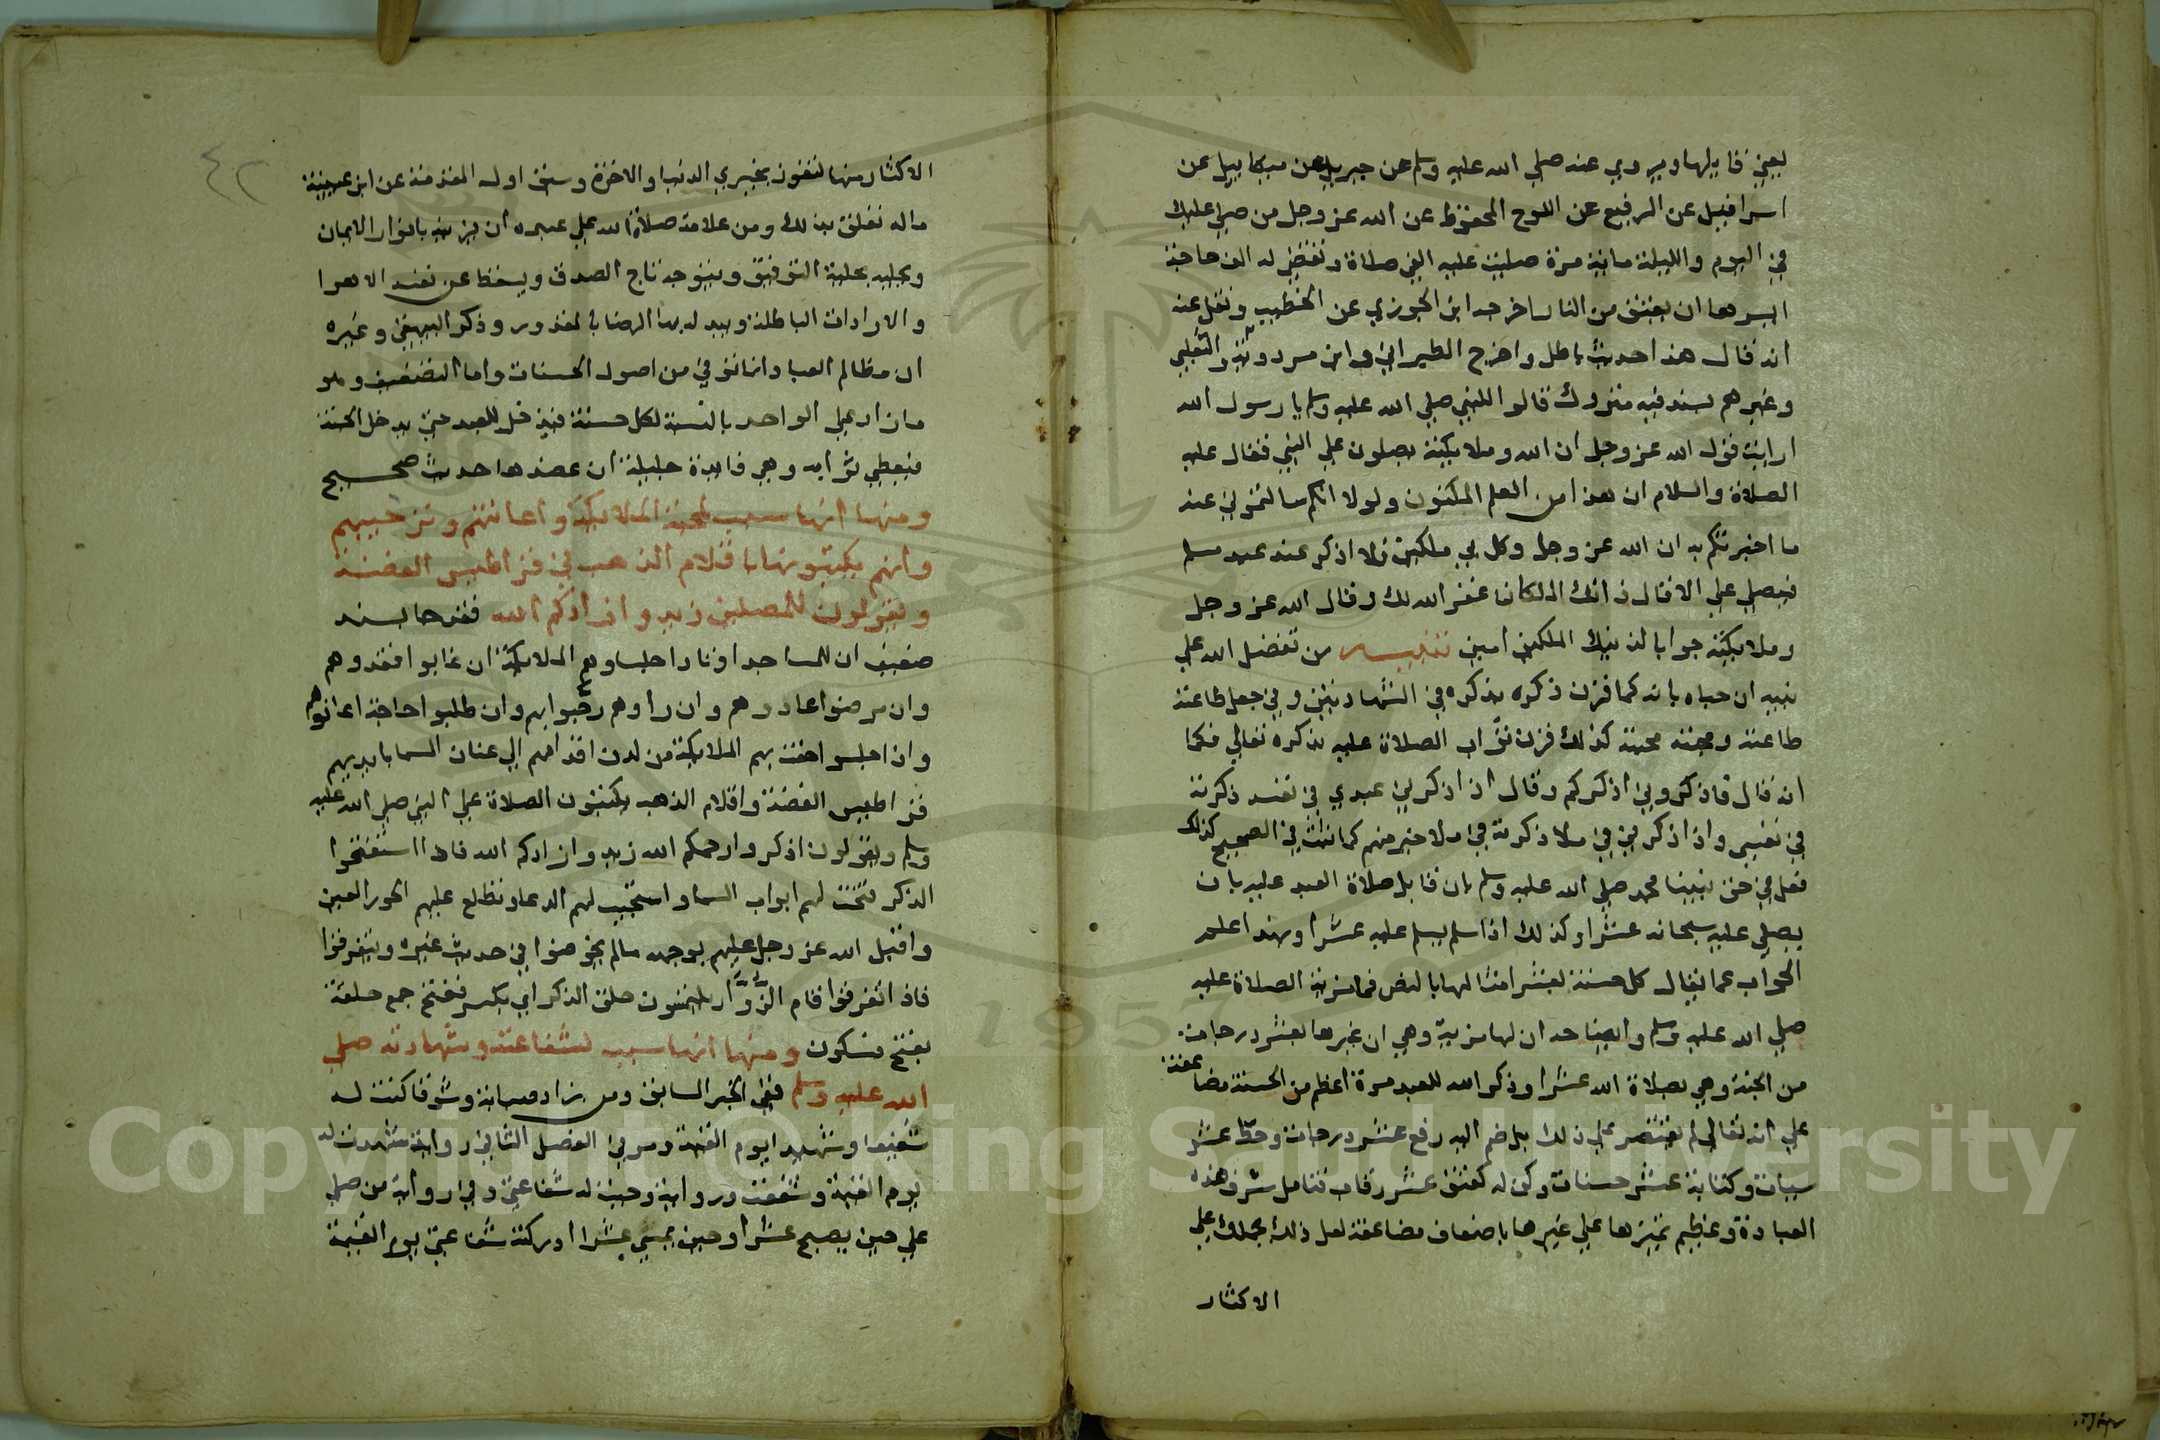 يعني قايلها ويروي عنه صلي الله عليه وسلم عن جبريل عن ميكاييل عن
اسرافيل عن الرفيع عن اللوح المحفوظ عن الله عز وجل من صلي عليك
في اليوم والليلة ماية مرة صليت عليه الفي صلاة وتقضي له الف حاجة
ايسرها ان يعتق من النار اخرجه ابن الجوزي عن الخطيب ونقل عنه
انه قال هذا حديث باطل واخرج الطبراني وابن مردويه والثعلبي
وغيرهم بسند فيه متروك قالوا للنبي صلي الله عليه وسلم يا رسول الله
ارايت قول الله عز وجل ان الله وملايكته يصلون علي النبي فقال عليه
الصلاة والسلام ان هذا من العلم المكنون ولولا انكم سالتموني عنه
ما اخبرتكم به ان الله عز وجل وكل بي ملكين فلا اذكر عند عبد مسلم
فيصلي علي الا قال ذانك الملكان غفر الله لك وقال الله عز وجل
وملايكته جوابا لذينك الملكين امين تنبيه من تفضل الله علي
نبيه ان حباه بانه كما قرن ذكره بذكره في الشهادتين وفي جعل طاعته
طاعته ومحبته محبته كذلك قرن ثواب الصلاة عليه بذكره تعالي فكما
انه قال فاذكروني اذكركم وقال اذا ذكرني عبدي في نفسه ذكرته
في نفسي واذا ذكرني في ملا ذكرته في ملا خير منهم كما ثبت في الصحيح كذلك
فعل في حق نبينا محمد صلي الله عليه وسلم بان قابل صلاة العبد عليه بان
يصلي عليه سبحانه عشرا وكذلك اذا سلم يسلم عليه عشرا وبهذا علم
الجواب عما يقال كل حسنة بعشر امثالها بالنص فما مزية الصلاة عليه
صلي الله عليه وسلم وايضاحه ان لها مزية وهي ان غيرها بعشر درجات
من الجنة وهي بصلاة الله عشرا وذكر الله للعبد مرة اعظم من الحسنة مضاعفة
علي انه تعالي لم يقتصر علي ذلك بل ضم اليه رفع عشر درجات وحط عشر
سيات وكتابة عشر حسنات وكن له كعتق عشر رقاب فتامل شرف هذه
العبادة وعظيم تميزها علي غيرها باضعاف مضاعفة لعل ذلك يحملك علي
الاكثار
٤٢
الاكثار منها لتفوز بخيري الدنيا والاخرة وسبق اول المقدمة عن ابن عيينة
ماله تعلق بذلك ومن علامة صلاة الله علي عبده ان يزينه بانوار الايمان
ويحليه بحلية التوفيق ويتوجه بتاج الصدق ويسقط عن نفسه الاهوا
والارادات الباطلة ويبدله بها الرضا بالمقدور وذكر البيهقي وغيره
ان مظالم العباد انما توفي من اصول الحسنات واما التضعيف وهو
ما زاد علي الواحد بالنسبة لكل حسنة فيدخل للعبد حتي يدخل الجنة
فيعطي ثوابه وهي فايدة جليلة ان عضدها حديث صحيح
ومنها انها سبب لمحبة الملايكة واعانتهم وترحيبهم
وانهم يكتبونها باقلام الذهب في قراطيس الفضة
ويقولون للمصلين زيدوا زادكم الله ففرحا بسند
ضعيف ان للمساجد اوتادا جلساوهم الملايكة ان غابوا فقدوهم
وان مرضوا عادوهم وان راوهم رحبوا بهم وان طلبوا حاجة اعانوهم
واذا جلسوا حفت بهم الملايكة من لدن اقدامهم الي عنان السما بايديهم
قراطيس الفضة واقلام الذهب يكتبون الصلاة علي النبي صلي الله عليه
وسلم ويقولون اذكروا رحمكم الله زيدوا زادكم الله فاذا استفتحوا
الذكر فتحت لهم ابواب السما واستجيب لهم الدعا وتطلع عليهم الحور العين
واقبل الله عز وجل عليهم بوجهه مالم يخوضوا في حديث غيره ويتفرقوا
فاذا تفرقوا قام الزوار يلتمسون حلق الذكر اي بكسر ففتح جمع حلقة
بفتح فسكون ومنها انها سبب لشفاعته وشهادته صلي
الله عليه وسلم ففي الخبر السابق ومن زاد صبابة وشوقا كنت له
شفيعا وشهيدا يوم القيمة ومر في الفصل الثاني رواية شهدت له
يوم القيمة وشفعت ورواية وجبت له شفاعتي وفي رواية من صلي
علي حين يصبح عشرا وحين يمسي عشرا ادركته شفاعتي يوم القيمة
Copyright © King Saud University
1957